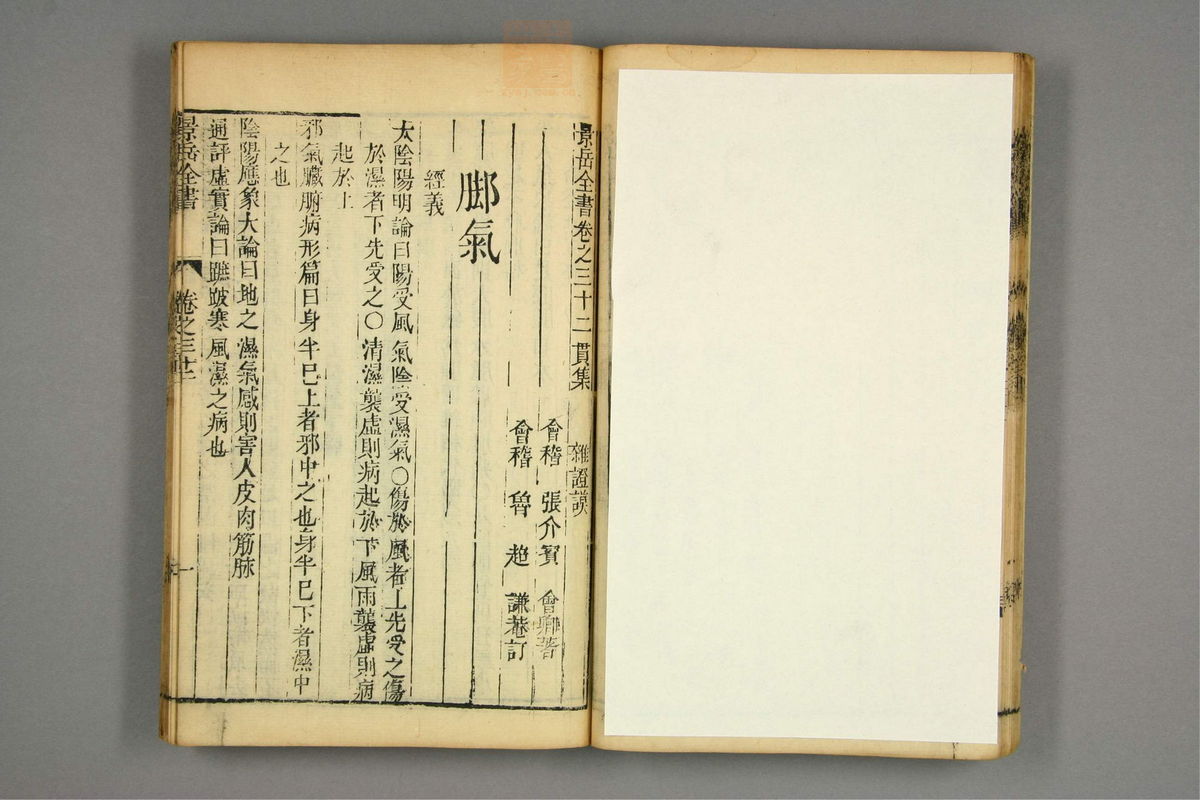 景岳全書卷之三十二貫集　雜證謨
會稽　張介賓　會卿著
會稽　魯超　謙菴訂
脚氣
經義
太陰陽明論曰陽受風氣陰受濕氣〇傷於風者上先受之傷
於濕者下先受之〇清濕襲虛則病起於下風雨襲虛則病
起於上
邪氣臟腑病形篇曰身半已上者邪中之也身半已下者濕中
之也
陰陽應象大論曰地之濕氣感則害人皮肉筋脉
通評虛實論曰蹠跛寒風濕之病也
景岳全書　卷之三十二　一